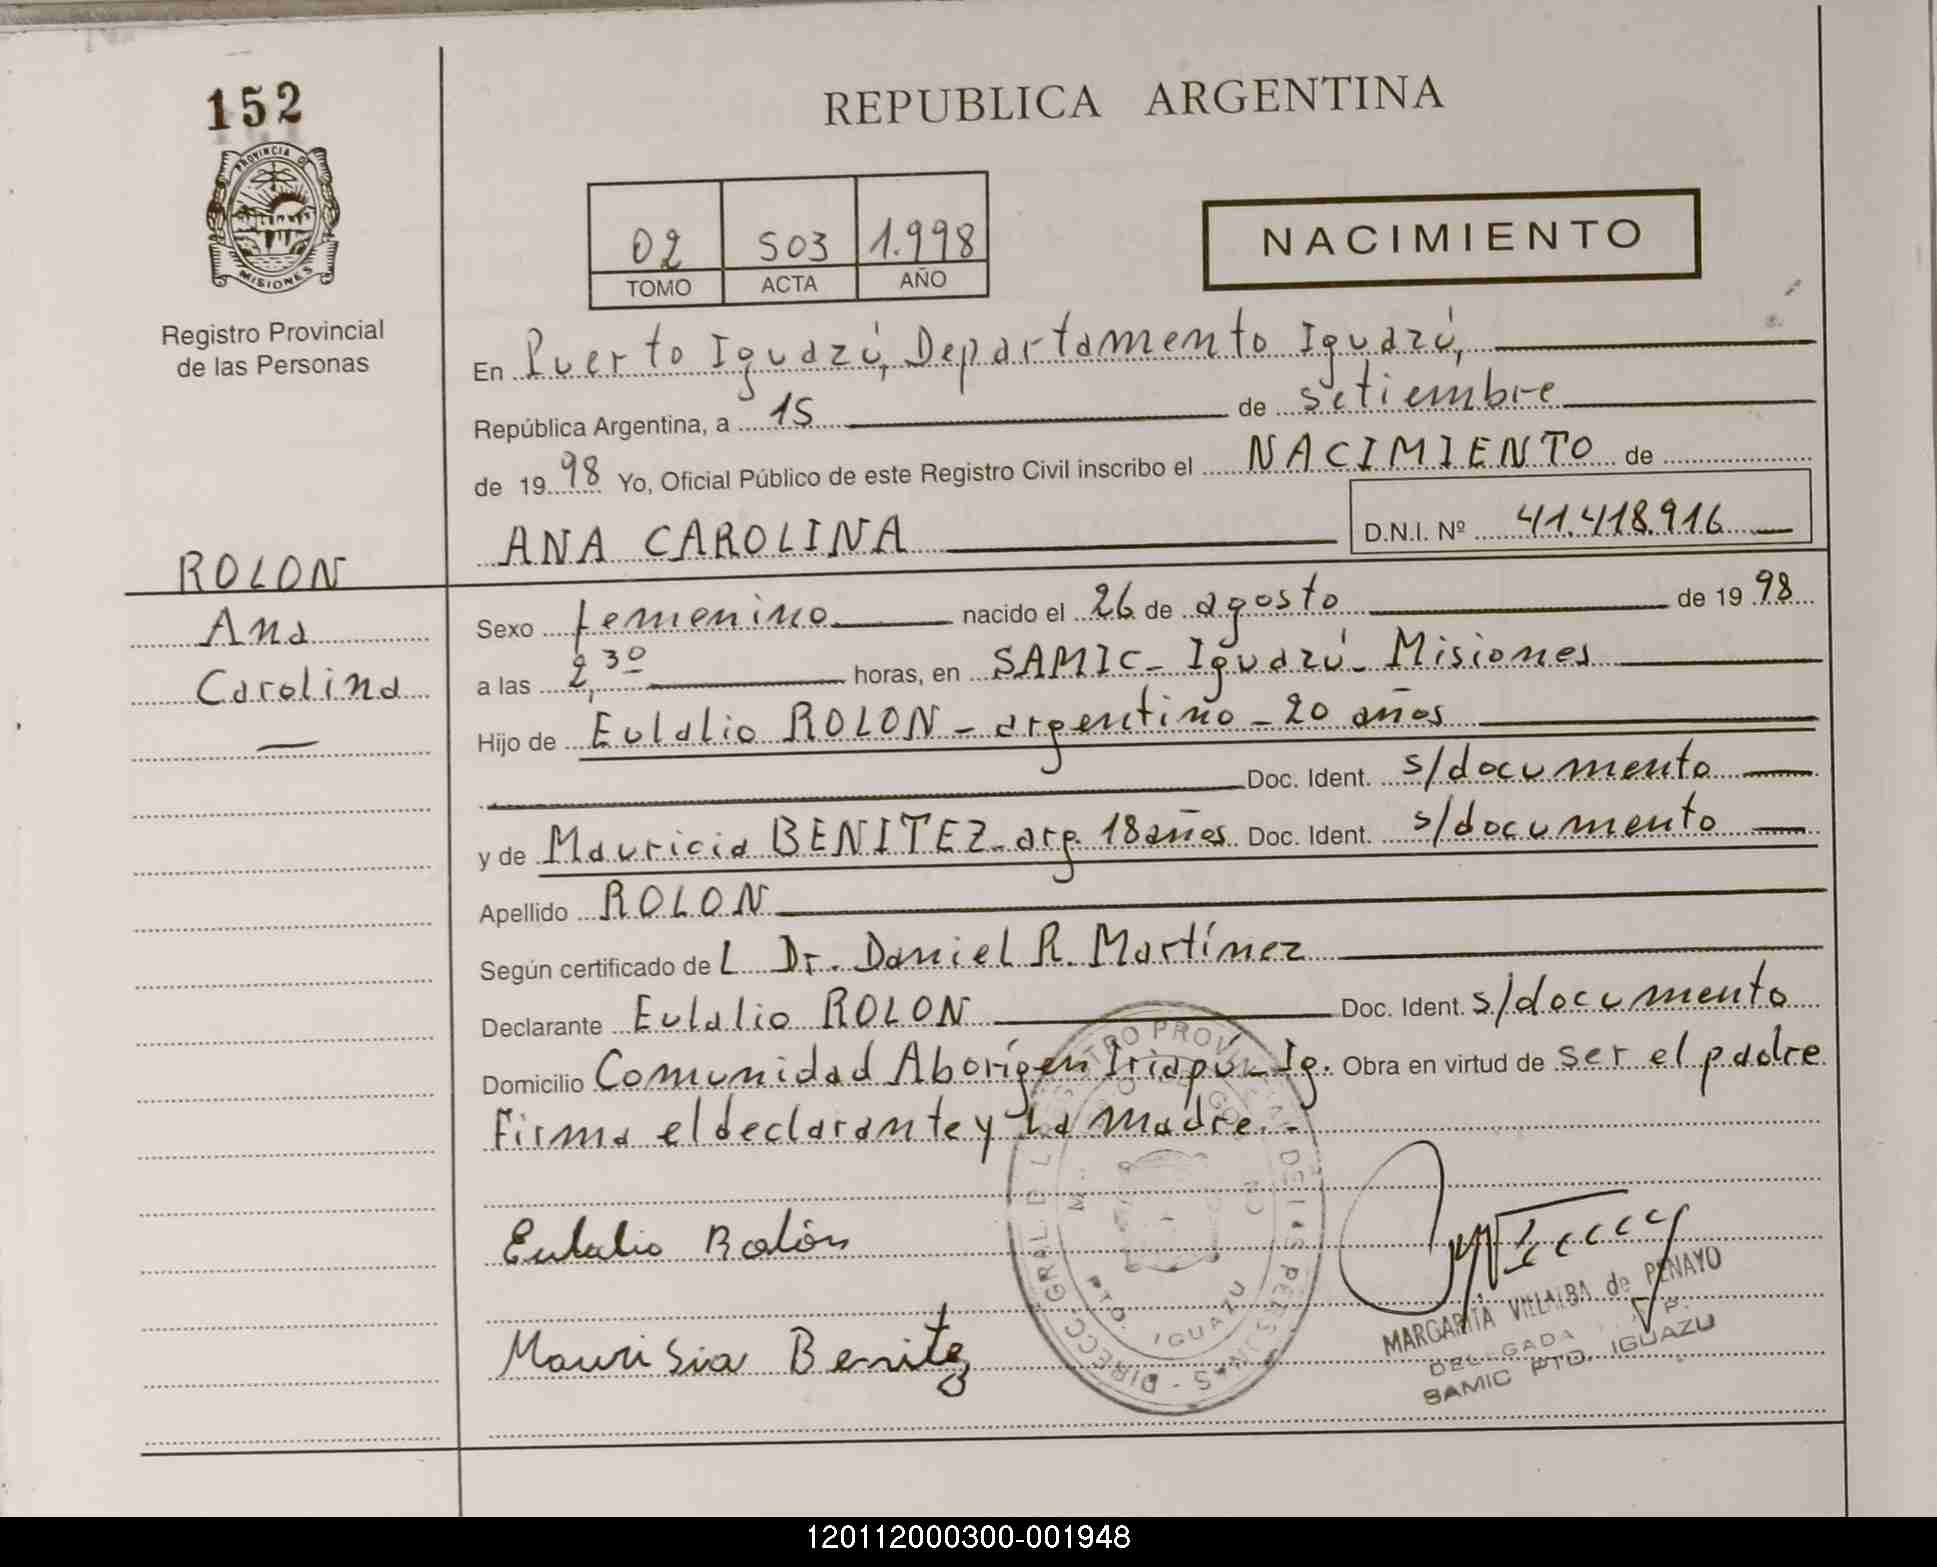 152
PROVINCIA DE
MISIONES
Registro Provincial
de las Personas
ROLON
Ana
Carolina
REPUBLICA ARGENTINA
02 503 1.998
TOMO ACTA AÑO
NACIMIENTO
En Puerto Iguazú, Departamento Iguazú,
República Argentina, a 15 de setiembre
de 19 98 Yo, Oficial Público de este Registro Civil inscribo el NACIMIENTO de
ANA CAROLINA D.N.I. Nº 41.418.916
Sexo femenino nacido el 26 de agosto de 19 98
a las 2,30 horas, en SAMIC - Iguazú - Misiones
Hijo de Eulalio ROLON - argentino - 20 años
Doc. Ident. s/documento
y de Mauricia BENITEZ - arg. 18 años Doc. Ident. s/documento
Apellido ROLON
Según certificado de L Dr. Daniel R. Martínez
Declarante Eulalio ROLON Doc. Ident. s/documento
Domicilio Comunidad Aborígen Iriapú - Ig. Obra en virtud de ser el padre
Firma el declarante y La madre. -
Eulalio Rolón
Maurisia Benitez
PTO. IGUAZU
MARGARITA VILLALBA de PENAYO
DELEGADA
SAMIC PTO. IGUAZU
120112000300-001948